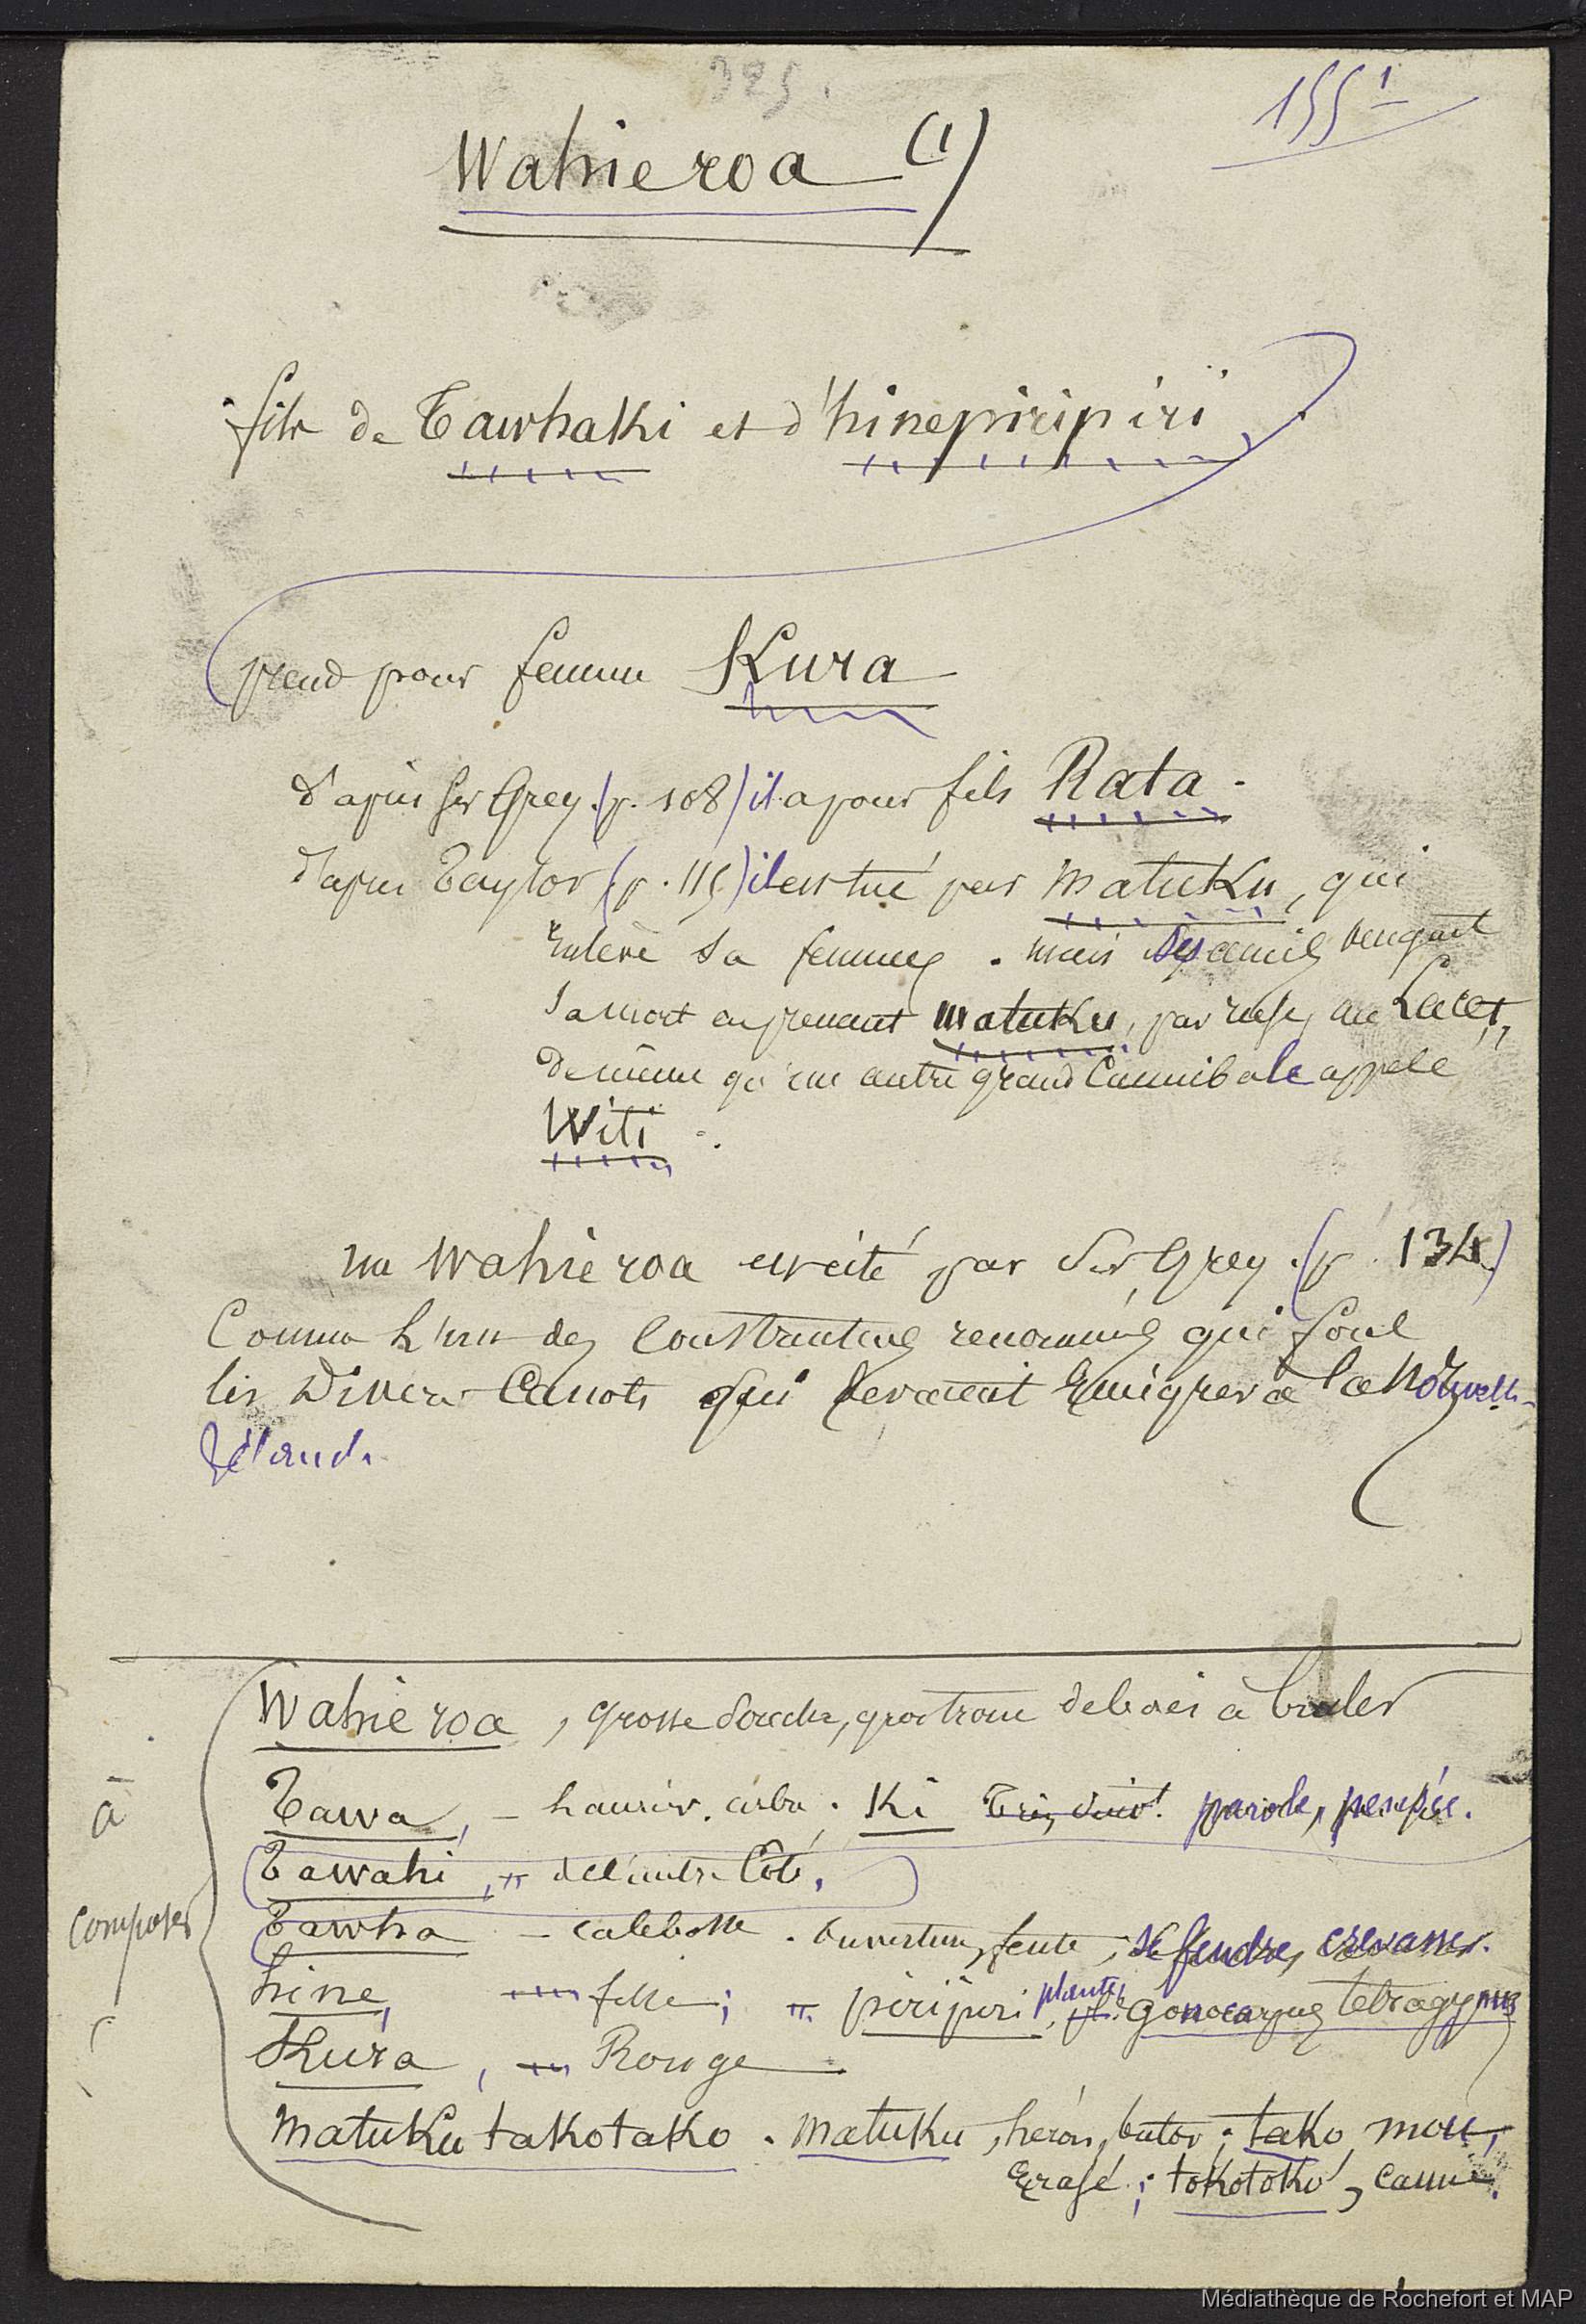 325.
155 1
Wahieroa (1)
fils de Tawhaki et d'hinepiripiri
prend pour femme Kura
d'après Sir Grey (p. 108) il a pour fils Rata.
d'après Taylor (p. 115) il est tué par Matuku, qui
enlève sa femme. mais ses amis vengent
sa mort en prenant matuku, par ruse, au Lacet,
de même qu'un autre grand Cannibale appelé
Witi.
un Wahieroa est cité par Sir Grey (p. 134)
Comme l'un des Constructeurs renommés qui font
les Divers Canots qui devaient Emigrer à la Nouvelle-
Zélande.
Wahieroa, grosse souche, gros tronc de bois à bruler
Tawa, - laurier, arbre. Ki parole, pensée.
Tawahi, " de l'autre Côté,
Tawha - calebasse. Ouverture, fente, se fendre, crevasser.
hine, fille; " piripiri, plante, Gonocarpus tetragynus
Kura, Rouge
à
composer
Matuku takotako. Matuku, héron, butor; tako, mou,
Ecrasé; tokotoko, canne.
Médiathèque de Rochefort et MAP